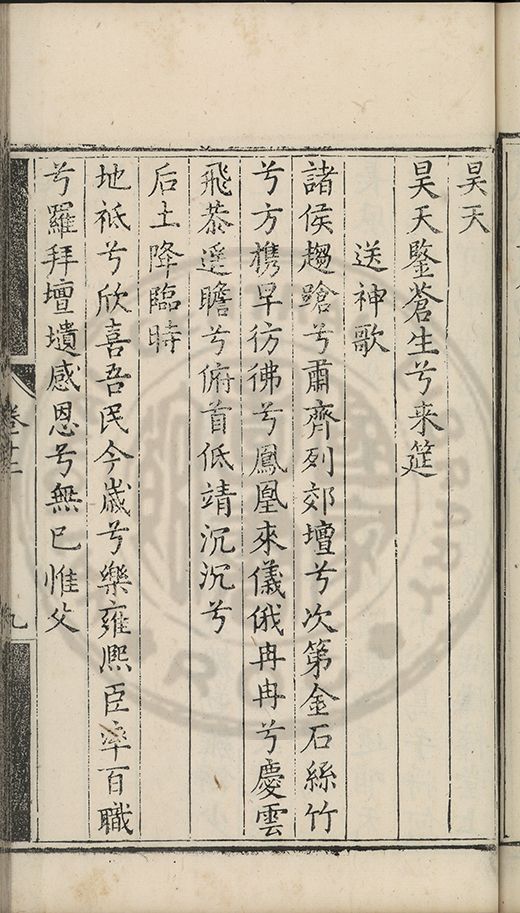 昊天
昊天鑒蒼生兮来筵
送神歌
諸侯趨蹌兮肅齊列郊壇兮次第金石絲竹
兮方携早彷彿兮鳳凰來儀俄冉冉兮慶雲
飛恭遥瞻兮俯首低靖沉沉兮
后土降臨時
地祗兮欣喜吾民今歲兮樂雍熈臣率百職
兮羅拜壇壝感恩兮無已惟父
卷十二
九